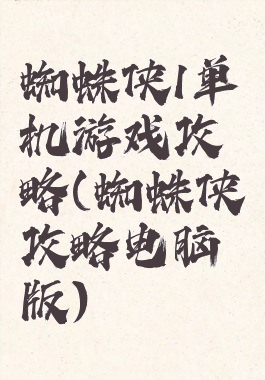 蜘蛛侠1单
机游戏攻
略(蜘蛛侠
攻略电脑
版)